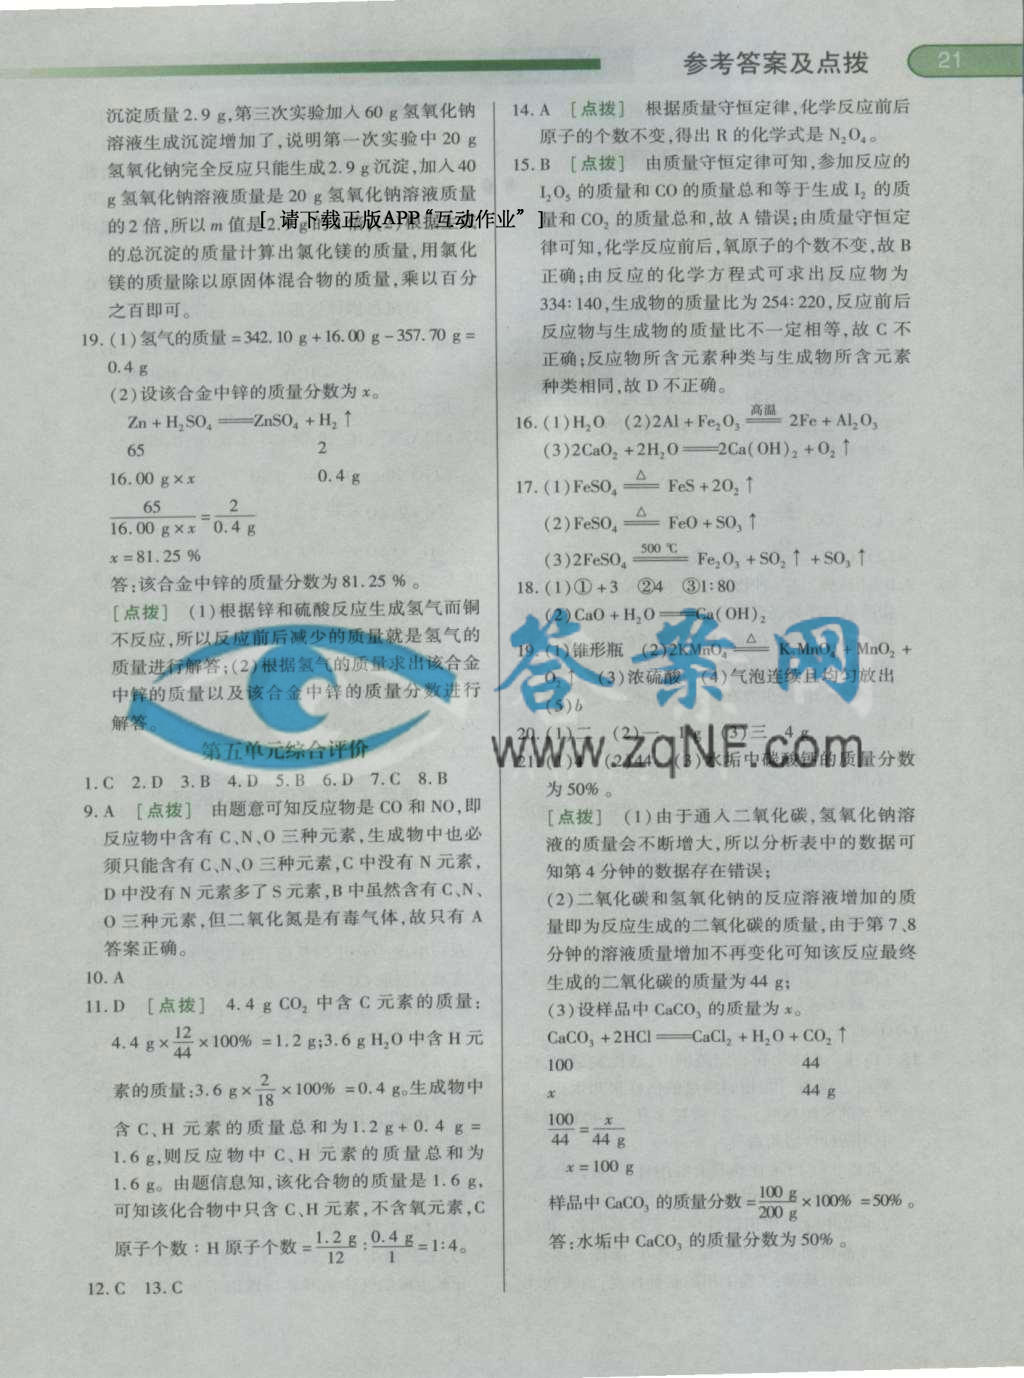 参考答案及点拨 21
沉淀质量2.9 g,第三次实验加入60 g氢氧化钠
溶液生成沉淀增加了,说明第一次实验中20 g
氢氧化钠完全反应只能生成2.9 g沉淀,加入40
g氢氧化钠溶液质量是20 g氢氧化钠溶液质量
的2倍,所以m值是2.
[ 请下载正版APP“互动作业” ]
根据
的总沉淀的质量计算出氯化镁的质量,用氯化
镁的质量除以原固体混合物的质量,乘以百分
之百即可。
19.(1)氢气的质量=342.10 g+16.00 g-357.70 g=
0.4 g
(2)设该合金中锌的质量分数为x。
Zn+H₂SO₄══ZnSO₄+H₂↑
65 2
16.00 g×x 0.4 g
65/(16.00 g×x)=2/(0.4 g)
x=81.25 %
答:该合金中锌的质量分数为81.25 %。
[点拨] (1)根据锌和硫酸反应生成氢气而铜
不反应,所以反应前后减少的质量就是氢气的
质量进行解答;(2)根据氢气的质量求出该合金
中锌的质量以及该合金中锌的质量分数进行
解答。
第五单元综合评价
1.C 2.D 3.B 4.D 5.B 6.D 7.C 8.B
9.A [点拨] 由题意可知反应物是CO和NO,即
反应物中含有C、N、O三种元素,生成物中也必
须只能含有C、N、O三种元素,C中没有N元素,
D中没有N元素多了S元素,B中虽然含有C、N、
O三种元素,但二氧化氮是有毒气体,故只有A
答案正确。
10.A
11.D [点拨] 4.4 g CO₂中含C元素的质量:
4.4 g×12/44×100% =1.2 g;3.6 g H₂O中含H元
素的质量:3.6 g×2/18×100% =0.4 g。生成物中
含C、H元素的质量总和为1.2 g+0.4 g=
1.6 g,则反应物中C、H元素的质量总和为
1.6 g。由题信息知,该化合物的质量是1.6 g,
可知该化合物中只含C、H元素,不含氧元素,C
原子个数:H原子个数=1.2 g/12:0.4 g/1=1:4。
12.C 13.C
14.A [点拨] 根据质量守恒定律,化学反应前后
原子的个数不变,得出R的化学式是N₂O₄。
15.B [点拨] 由质量守恒定律可知,参加反应的
I₂O₅的质量和CO的质量总和等于生成I₂的质
量和CO₂的质量总和,故A错误;由质量守恒定
律可知,化学反应前后,氧原子的个数不变,故B
正确;由反应的化学方程式可求出反应物为
334:140,生成物的质量比为254:220,反应前后
反应物与生成物的质量比不一定相等,故C不
正确;反应物所含元素种类与生成物所含元素
种类相同,故D不正确。
16.(1)H₂O (2)2Al+Fe₂O₃ 高温══ 2Fe+Al₂O₃
(3)2CaO₂+2H₂O══2Ca(OH)₂+O₂↑
17.(1)FeSO₄ △══ FeS+2O₂↑
(2)FeSO₄ △══ FeO+SO₃↑
(3)2FeSO₄ 500 ℃══ Fe₂O₃+SO₂↑+SO₃↑
18.(1)①+3 ②4 ③1:80
(2)CaO+H₂O══Ca(OH)₂
19.(1)锥形瓶 (2)2KMnO₄ △══ K₂MnO₄+MnO₂+
O₂↑ (3)浓硫酸 (4)气泡连续且均匀放出
(5)b
20.(1)二 (2)一 1 g (3)三 4 g
21.(1)4 (2)44 (3)水垢中碳酸钙的质量分数
为50%。
[点拨] (1)由于通入二氧化碳,氢氧化钠溶
液的质量会不断增大,所以分析表中的数据可
知第4分钟的数据存在错误;
(2)二氧化碳和氢氧化钠的反应溶液增加的质
量即为反应生成的二氧化碳的质量,由于第7、8
分钟的溶液质量增加不再变化可知该反应最终
生成的二氧化碳的质量为44 g;
(3)设样品中CaCO₃的质量为x。
CaCO₃+2HCl══CaCl₂+H₂O+CO₂↑
100 44
x 44 g
100/44=x/(44 g)
x=100 g
样品中CaCO₃的质量分数=100 g/200 g×100% =50%。
答:水垢中CaCO₃的质量分数为50%。
答案网
www.zqNF.com